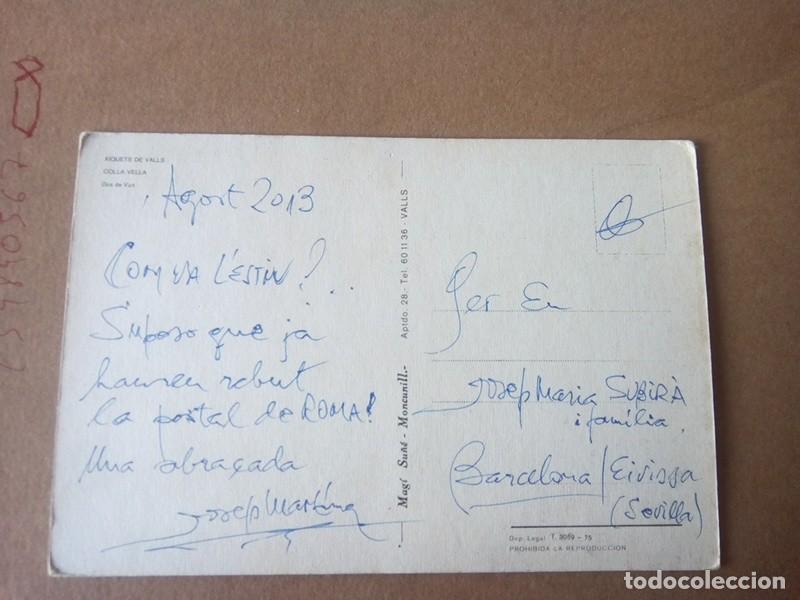 XIQUETS DE VALLS
COLLA VELLA
Dos de Vuit
Agost 2013
COM VA L'ESTIU?...
Suposo que ja
haureu rebut
la postal de ROMA!
Una abraçada
Josep Martína
Magí Suñé - Moncunill.- Aptdo. 28 - Tel. 60 11 36 - VALLS
Per En
Josep Maria SUBIRÀ
i família.
Barcelona/Eivissa
(Sevilla)
Dep. Legal T. 2069 - 75
PROHIBIDA LA REPRODUCCION
todocoleccion
todocoleccion.net